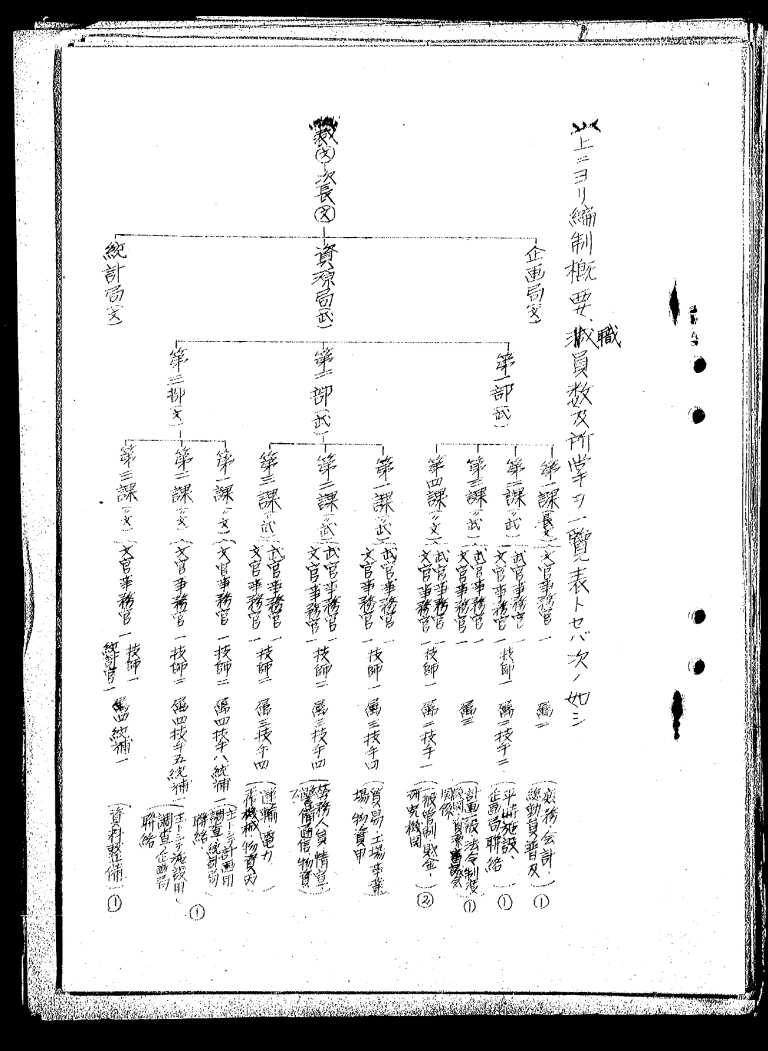 上ニヨリ編制概要、職員数及所掌ヲ一覧表トセバ次ノ如シ
裁(文)
次長(文)
企画局(文)
資源局(武)
統計局(文)
第一部(武)
第二部(武)
第三部(文)
第一課(長文) 文官事務官一 属二 庶務、会計、総動員普及 ①
第二課(〃武) 武官事務官一 文官事務官一 技師一 属三 技手二 平時施設、企画局聯絡 ①
第三課(〃武) 武官事務官一 文官事務官一 属三 計画 法令制度 関係 ①
第四課(〃文) 武官事務官一 文官事務官一 技師一 属二 技手一 研究機関 ②
第一課(〃武) 武官事務官一 文官事務官一 技師一 属三 技手四 貿易、工場事業場物資甲
第二課(〃武) 武官事務官一 文官事務官一 技師二 属三 技手四 労務人員情宣 警備通信物資乙
第三課(〃武) 武官事務官一 文官事務官一 技師二 属三 技手四 運輸電力 作機械物資丙
第一課(〃文) 文官事務官一 技師二 属四 技手八 統補一 主トシテ計画用調査統計局聯絡
第二課(〃文) 文官事務官一 技師二 属四 技手五 統補一 主トシテ施設用調査企画局聯絡 ①
第三課(〃文) 文官事務官一 技師一 統計官一 属四 統補一 資料整備 ①